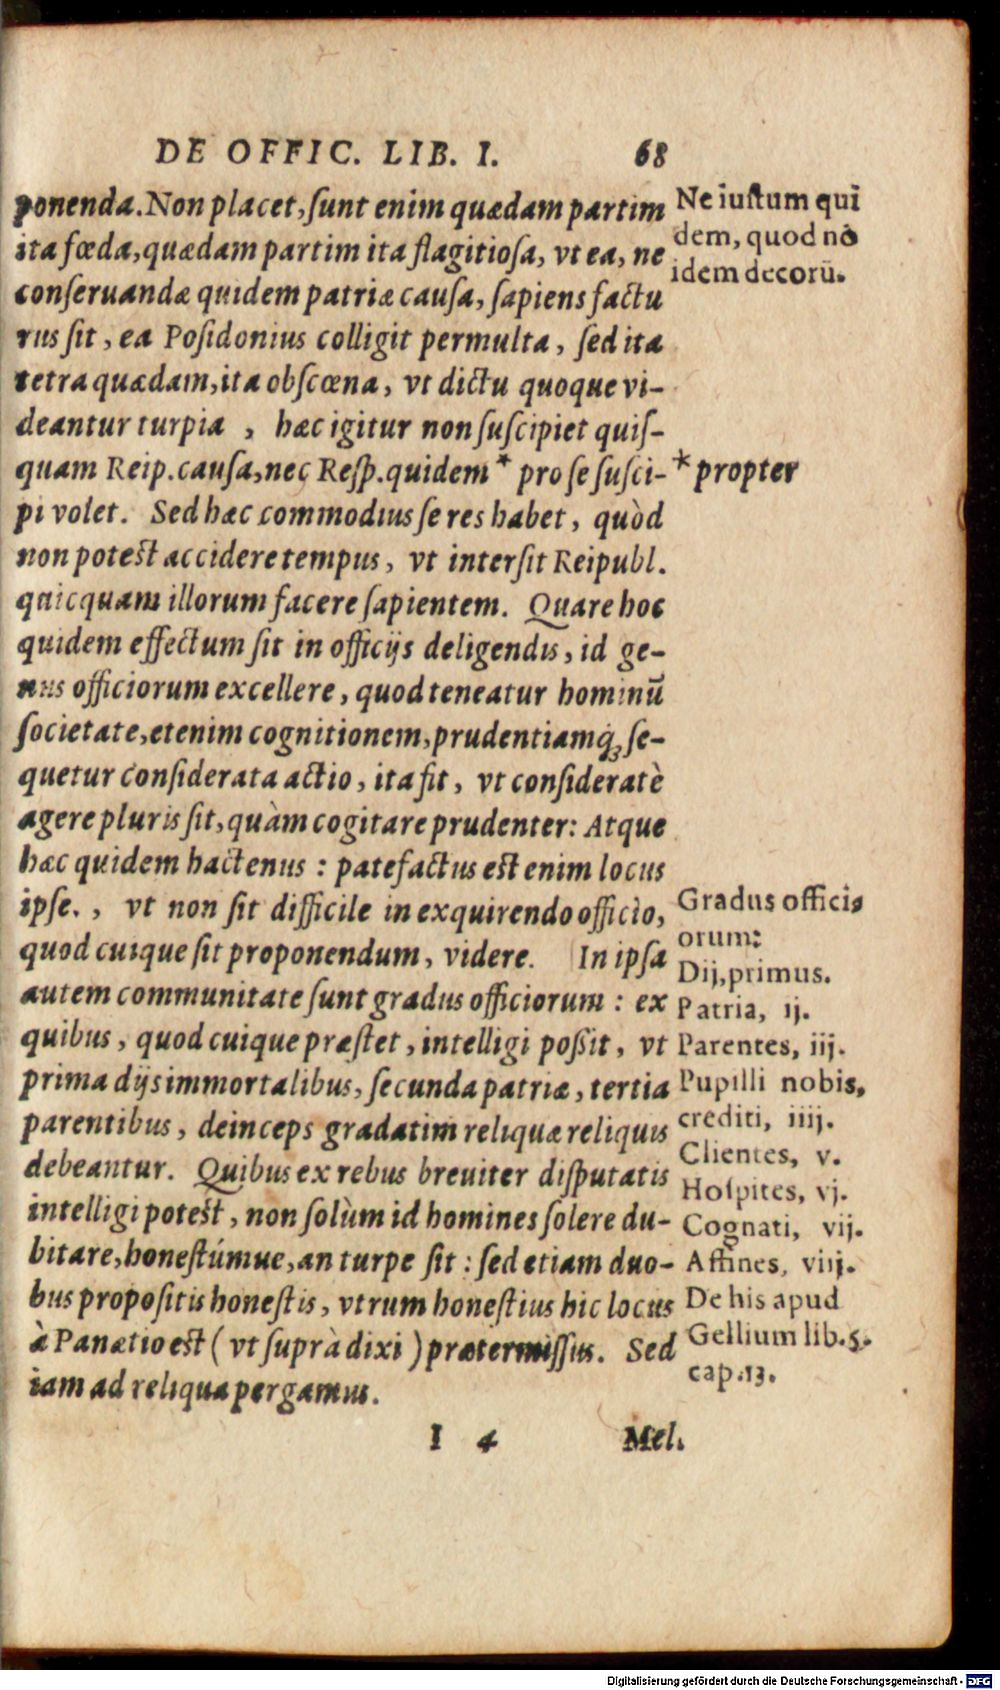 DE OFFIC. LIB. I. 68
ponenda. Non placet, ſunt enim quædam partim
ita fœda, quædam partim ita flagitioſa, vt ea, ne
conſeruandæ quidem patriæ cauſa, ſapiens factu
rus ſit, ea Poſidonius colligit permulta, ſed ita
tetra quædam, ita obſcœna, vt dictu quoque vi-
deantur turpia , hæc igitur non ſuſcipiet quiſ-
quam Reip. cauſa, nec Reſp. quidem * pro ſe ſuſci-
pi volet. Sed hæc commodius ſe res habet, quòd
non poteſt accidere tempus, vt interſit Reipubl.
quicquam illorum facere ſapientem. Quare hoc
quidem effectum ſit in officijs deligendis, id ge-
nus officiorum excellere, quod teneatur hominū
ſocietate, etenim cognitionem, prudentiamq́; ſe-
quetur conſiderata actio, ita fit, vt conſideratè
agere pluris ſit, quàm cogitare prudenter: Atque
hæc quidem hactenus : patefactus eſt enim locus
ipſe. , vt non ſit difficile in exquirendo officio,
quod cuique ſit proponendum, videre. In ipſa
autem communitate ſunt gradus officiorum : ex
quibus, quod cuique præſtet, intelligi poſſit, vt
prima dijs immortalibus, ſecunda patriæ, tertia
parentibus, deinceps gradatim reliquæ reliquis
debeantur. Quibus ex rebus breuiter diſputatis
intelligi poteſt, non ſolùm id homines ſolere du-
bitare, honeſtúmue, an turpe ſit : ſed etiam duo-
bus propoſitis honeſtis, vtrum honeſtius hic locus
à Panætio eſt ( vt ſuprà dixi ) prætermiſſus. Sed
iam ad reliqua pergamus.
I 4 Mel.
Ne iuſtum qui
dem, quod nō
idem decorū.
* propter
Gradus offici
orum:
Dij, primus.
Patria, ij.
Parentes, iij.
Pupilli nobis,
crediti, iiij.
Clientes, v.
Hoſpites, vj.
Cognati, vij.
Affines, viij.
De his apud
Gellium lib. 5.
cap. 13.
Digitalisierung gefördert durch die Deutsche Forschungsgemeinschaft - DFG